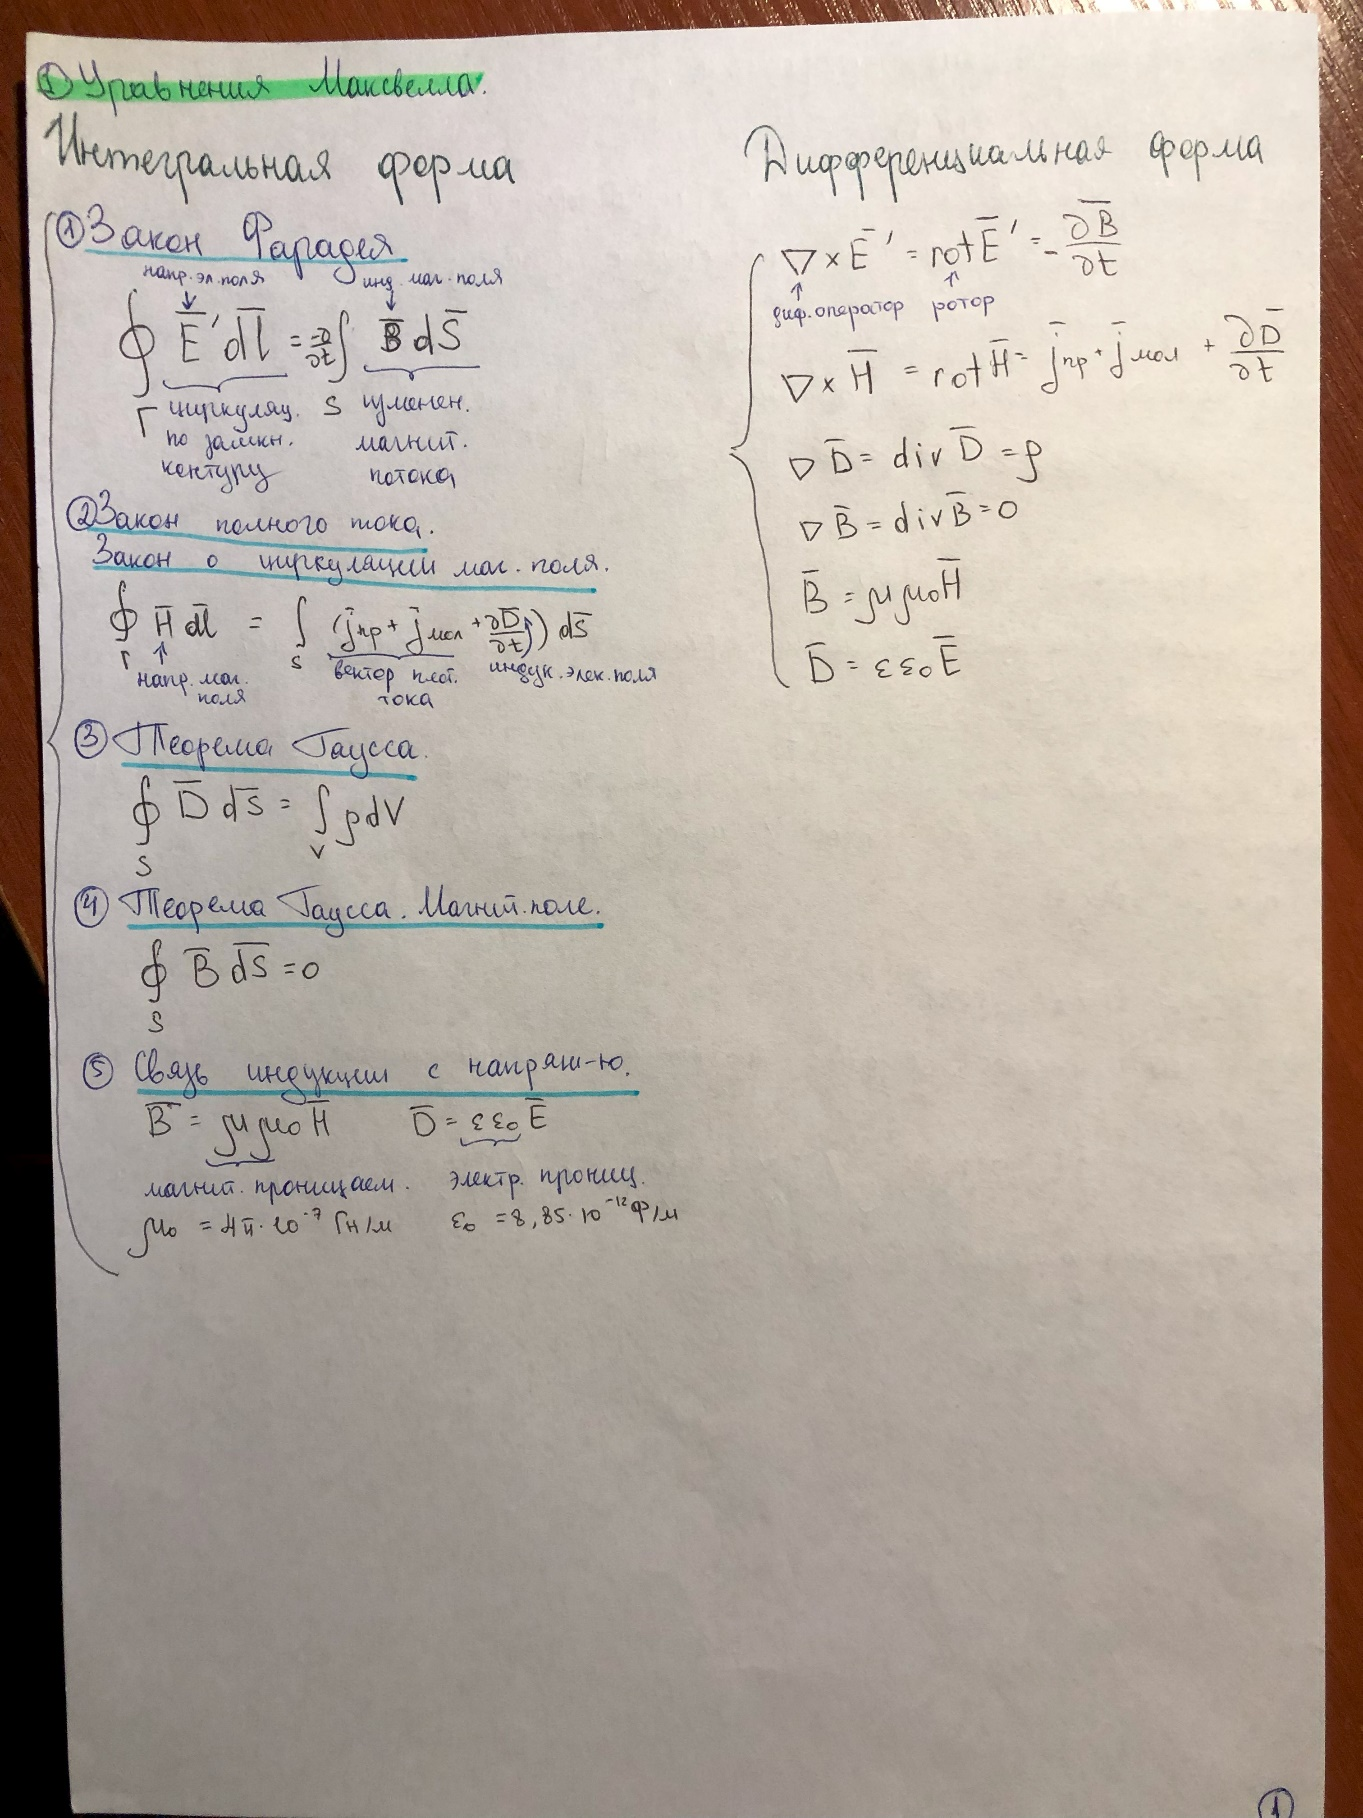 ① Уравнения Максвелла.
Интегральная форма
① Закон Фарадея
напр. эл. поля инд. маг. поля
∮ E̅′ dl̅ = -∂/∂t ∫ B̅ dS̅
Г циркуляц. S изменен.
по замкн. магнит.
контуру потока
② Закон полного тока.
Закон о циркуляции маг. поля.
∮ H̅ dl̅ = ∫ (j̅пр + j̅мол + ∂D̅/∂t) dS̅
Г S
напр. маг. вектор плот. индук. элек. поля
поля тока
③ Теорема Гаусса.
∮ D̅ dS̅ = ∫ ρdV
S V
④ Теорема Гаусса. Магнит. поле.
∮ B̅ dS̅ = 0
S
⑤ Связь индукции с напряж-ю.
B̅ = μμ₀H̅ D̅ = εε₀E̅
магнит. проницаем. электр. прониц.
μ₀ = 4π·10⁻⁷ Гн/м ε₀ = 8,85·10⁻¹² Ф/м
Дифференциальная форма
∇ × E̅′ = rot E̅′ = -∂B̅/∂t
диф. оператор ротор
∇ × H̅ = rot H̅ = j̅пр + j̅мол + ∂D̅/∂t
∇ D̅ = div D̅ = ρ
∇ B̅ = div B̅ = 0
B̅ = μμ₀H̅
D̅ = εε₀E̅
1